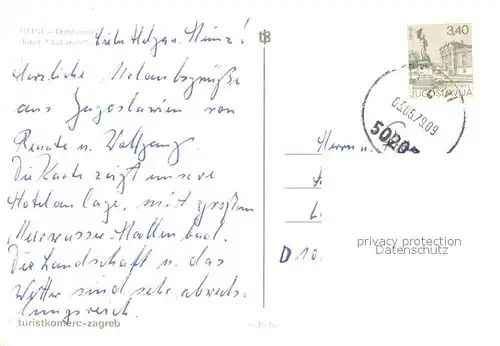 Liebe Helga u. Heinz!
Herzliche Urlaubsgrüße
aus Jugoslavien von
Renate u. Wolfgang.
Die Karte zeigt unsere
Hotelanlage, mit großem
Meerwasser-Hallenbad.
Die Landschaft u. das
Wetter sind sehr abwechs-
lungsreich.
turistkomerc-zagreb
3,40
JUGOSLAVIJA
Herrn u.
D 10
privacy protection
Datenschutz